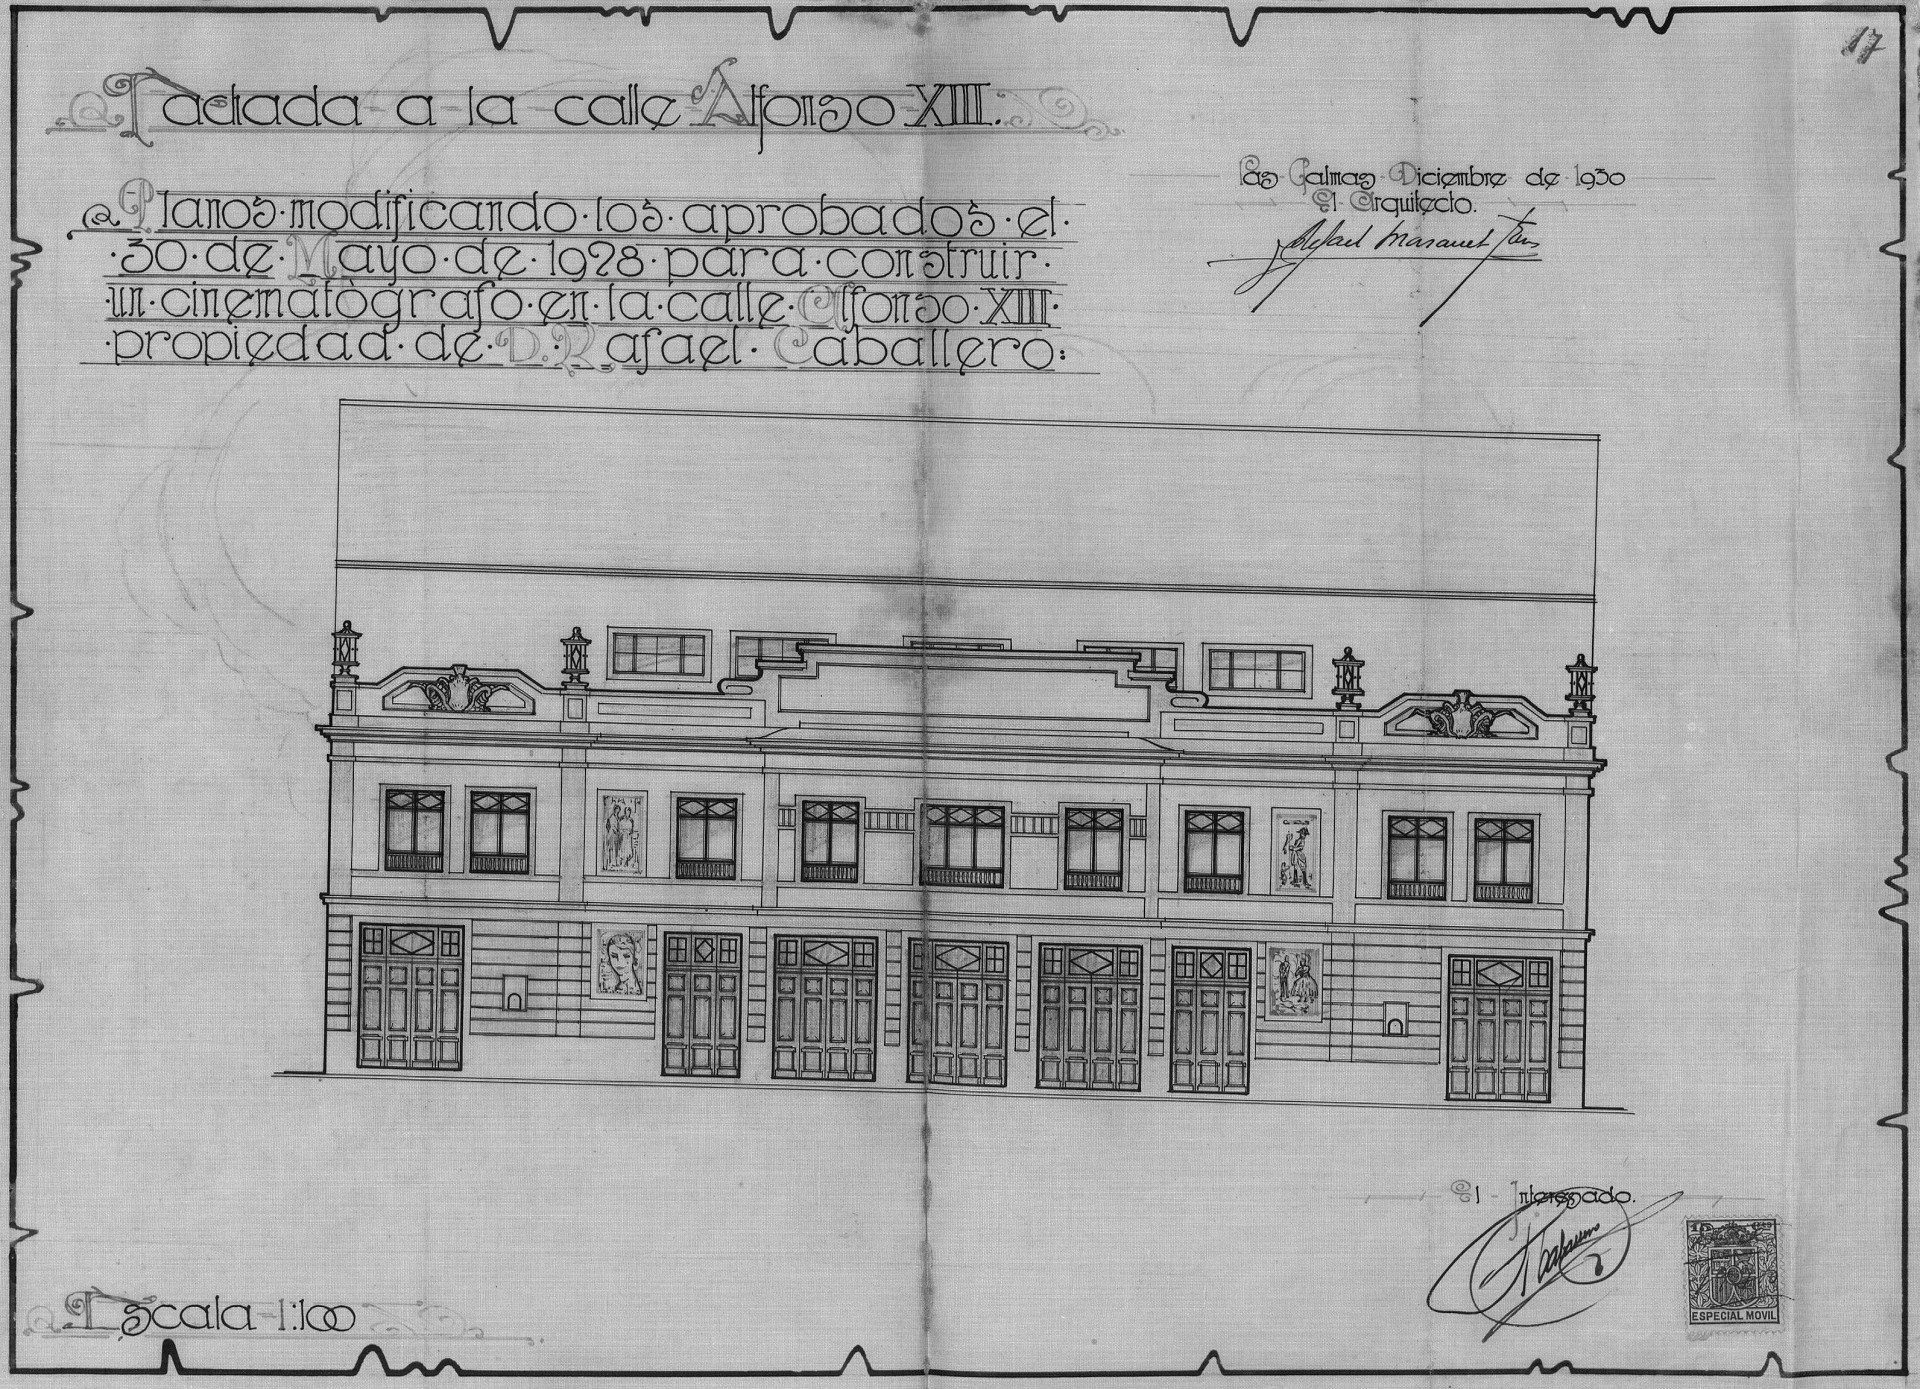 Fachada - a - la - calle Alfonso XIII.
17
Planos · modificando · los · aprobados · el ·
· 30 · de · Mayo · de · 1928 · para · construir ·
· un · cinematógrafo · en · la · calle · Alfonso · XIII ·
· propiedad · de · D. Rafael · Caballero :
Las Palmas Diciembre de 1930
El Arquitecto.
Rafael Masanet Faus
El - Interesado.
ESPECIAL MOVIL
Escala - 1:100